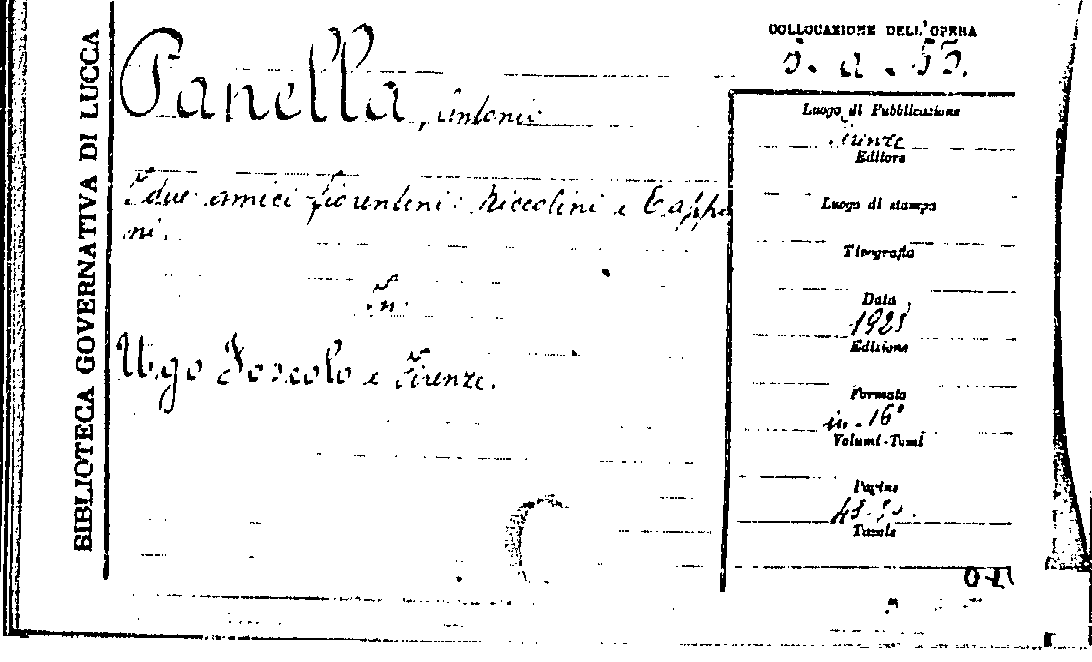 BIBLIOTECA GOVERNATIVA DI LUCCA
Panella, Antonio
I due amici fiorentini: Niccolini e Cappo
ni.
In:
Ugo Foscolo e Firenze.
COLLOCAZIONE DELL'OPERA
Luogo di Pubblicazione
Firenze
Editore
Luogo di stampa
Tipografia
Data
1928
Edizione
Formato
in-16°
Volumi-Tomi
Pagine
Tavole